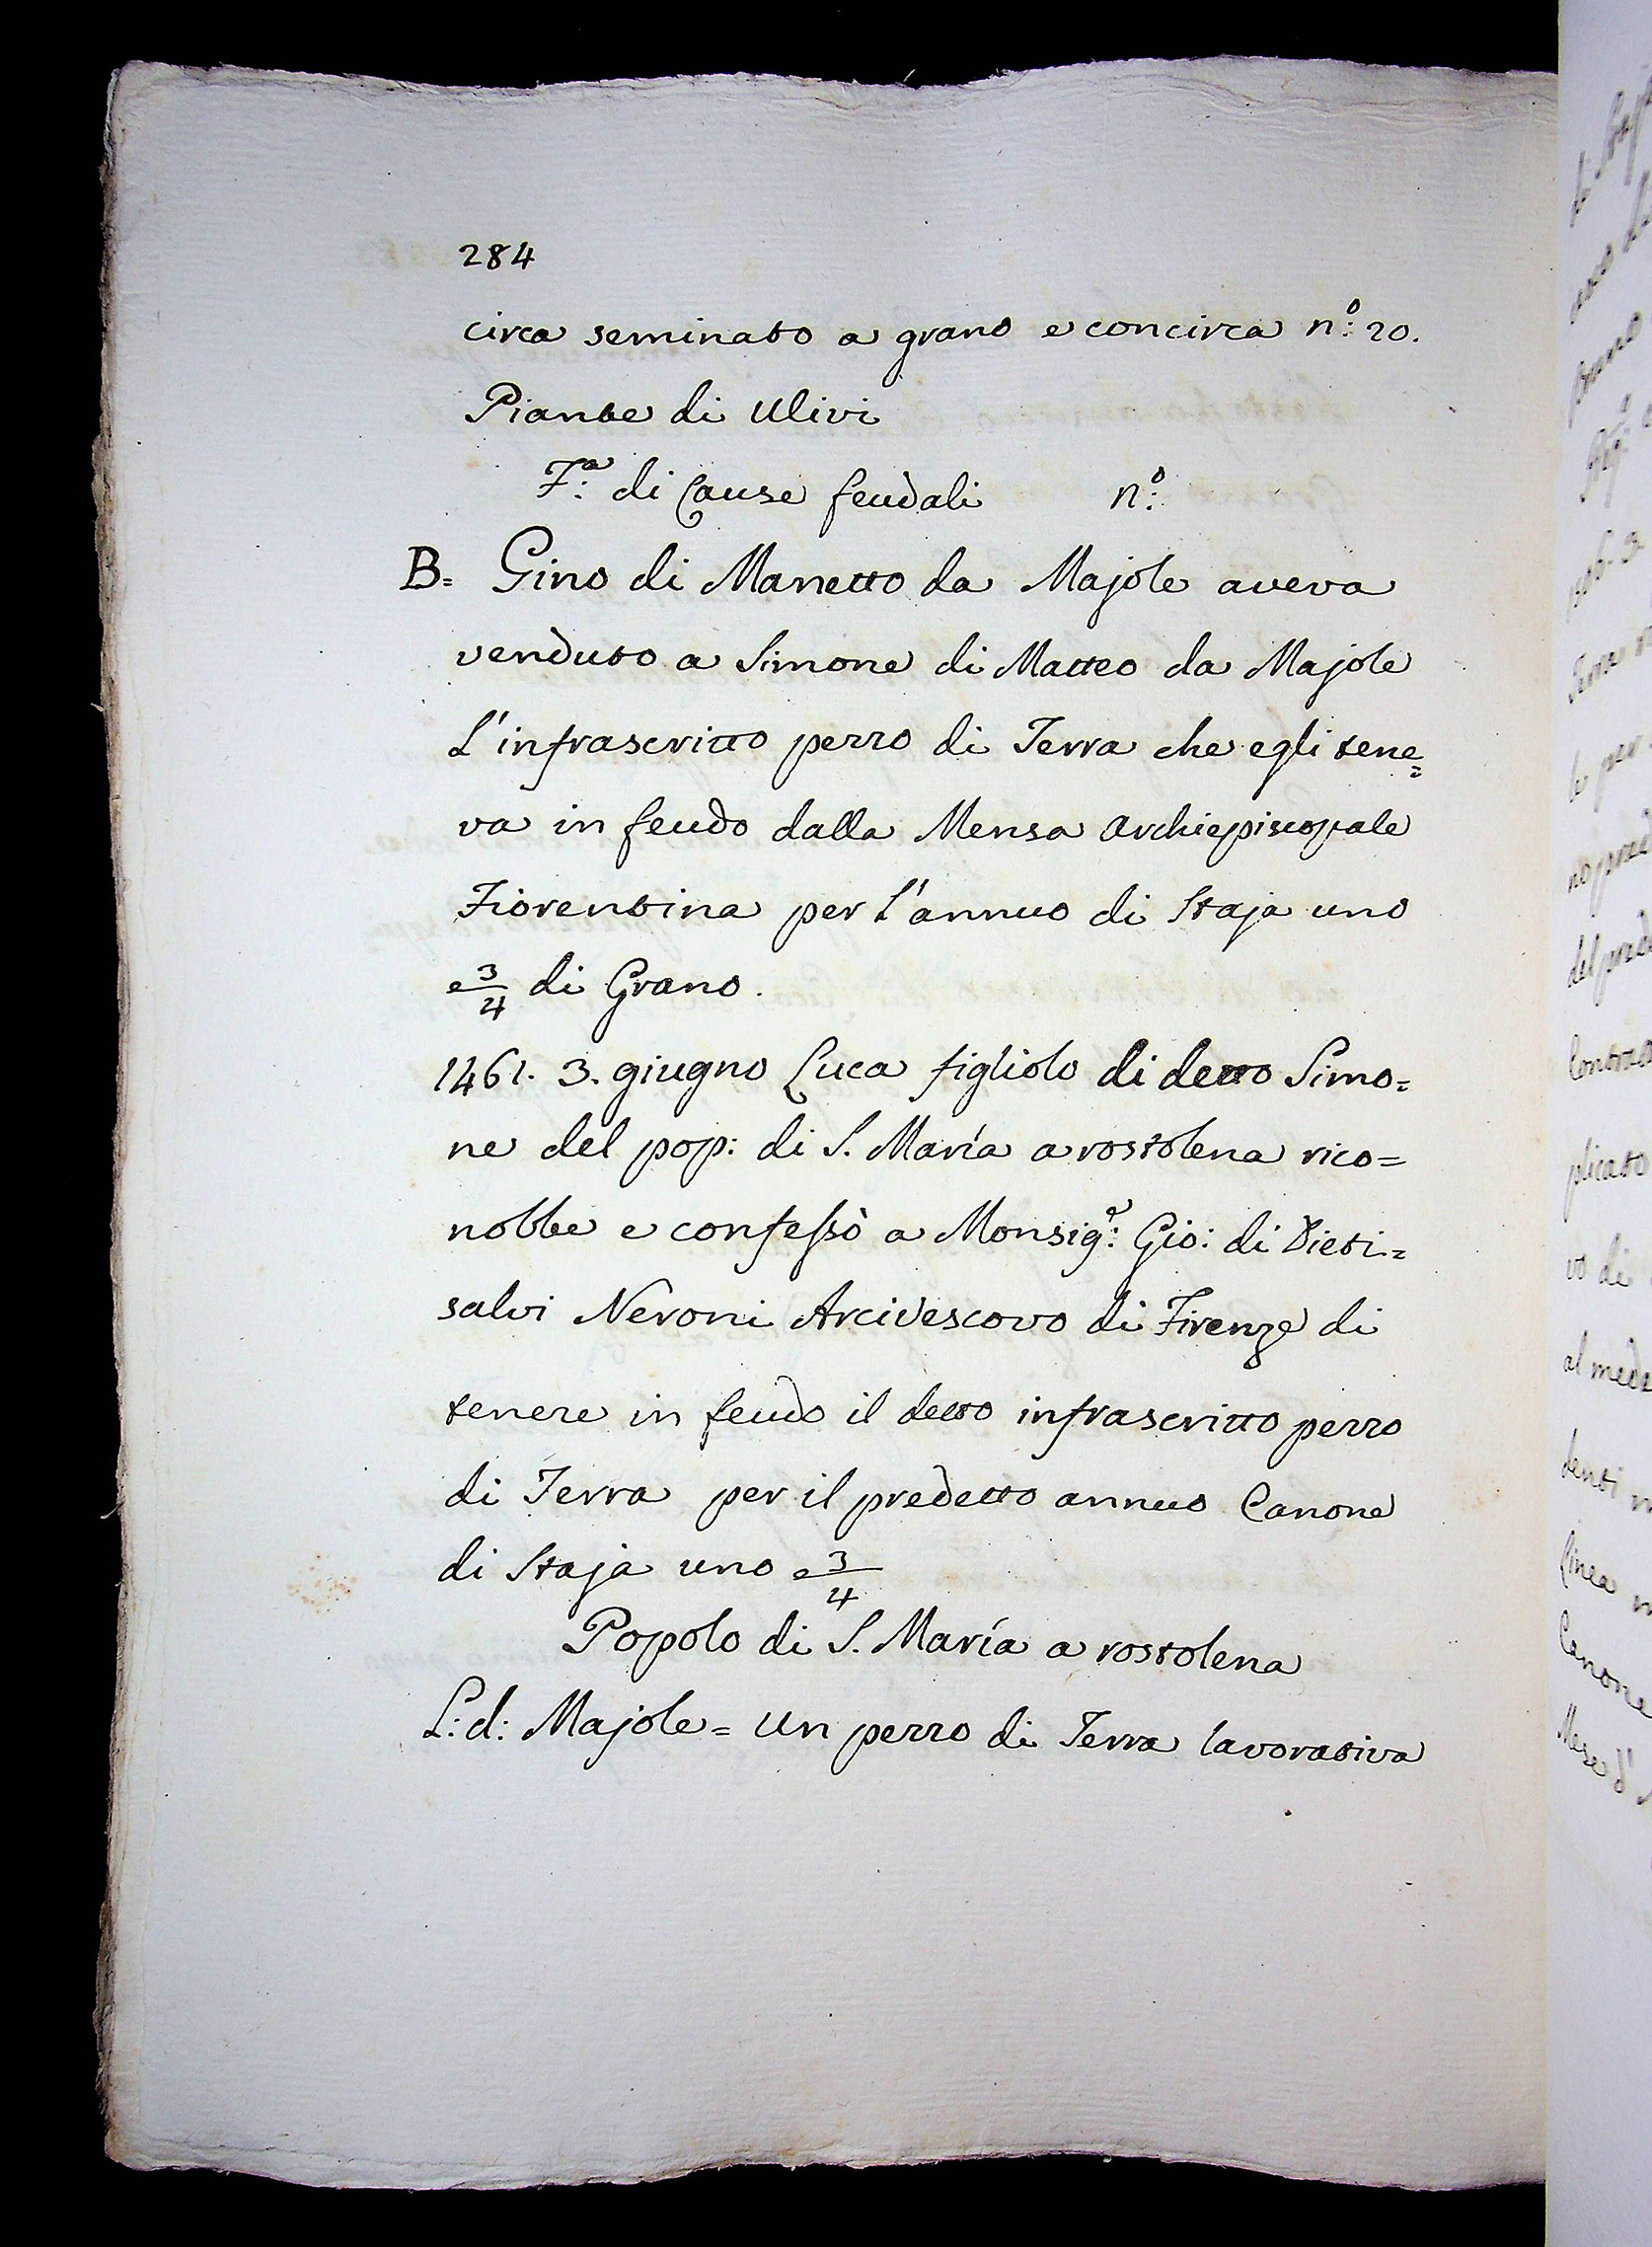 284
circa seminato a grano e con circa n.º 20.
Piante di Ulivi
F.ª di Cause feudali n.º
B= Gino di Manetto da Majole aveva
venduto a Simone di Matteo da Majole
L'infrascritto pezzo di Terra che egli tene=
va in feudo dalla Mensa Archiepiscopale
Fiorentina per l'annuo di Staja uno
e 3/4 di Grano.
1461. 3. giugno Luca figliolo di detto Simo=
ne del pop: di S. María a rostolena rico=
nobbe e confessò a Monsig.e: Gio: di Dieti=
salvi Neroni Arcivescovo di Firenze di
tenere in feudo il detto infrascritto pezzo
di Terra per il predetto annuo Canone
di Staja uno e 3/4
Popolo di S. María a rostolena
L: d: Majole= Un pezzo di Terra lavorativa